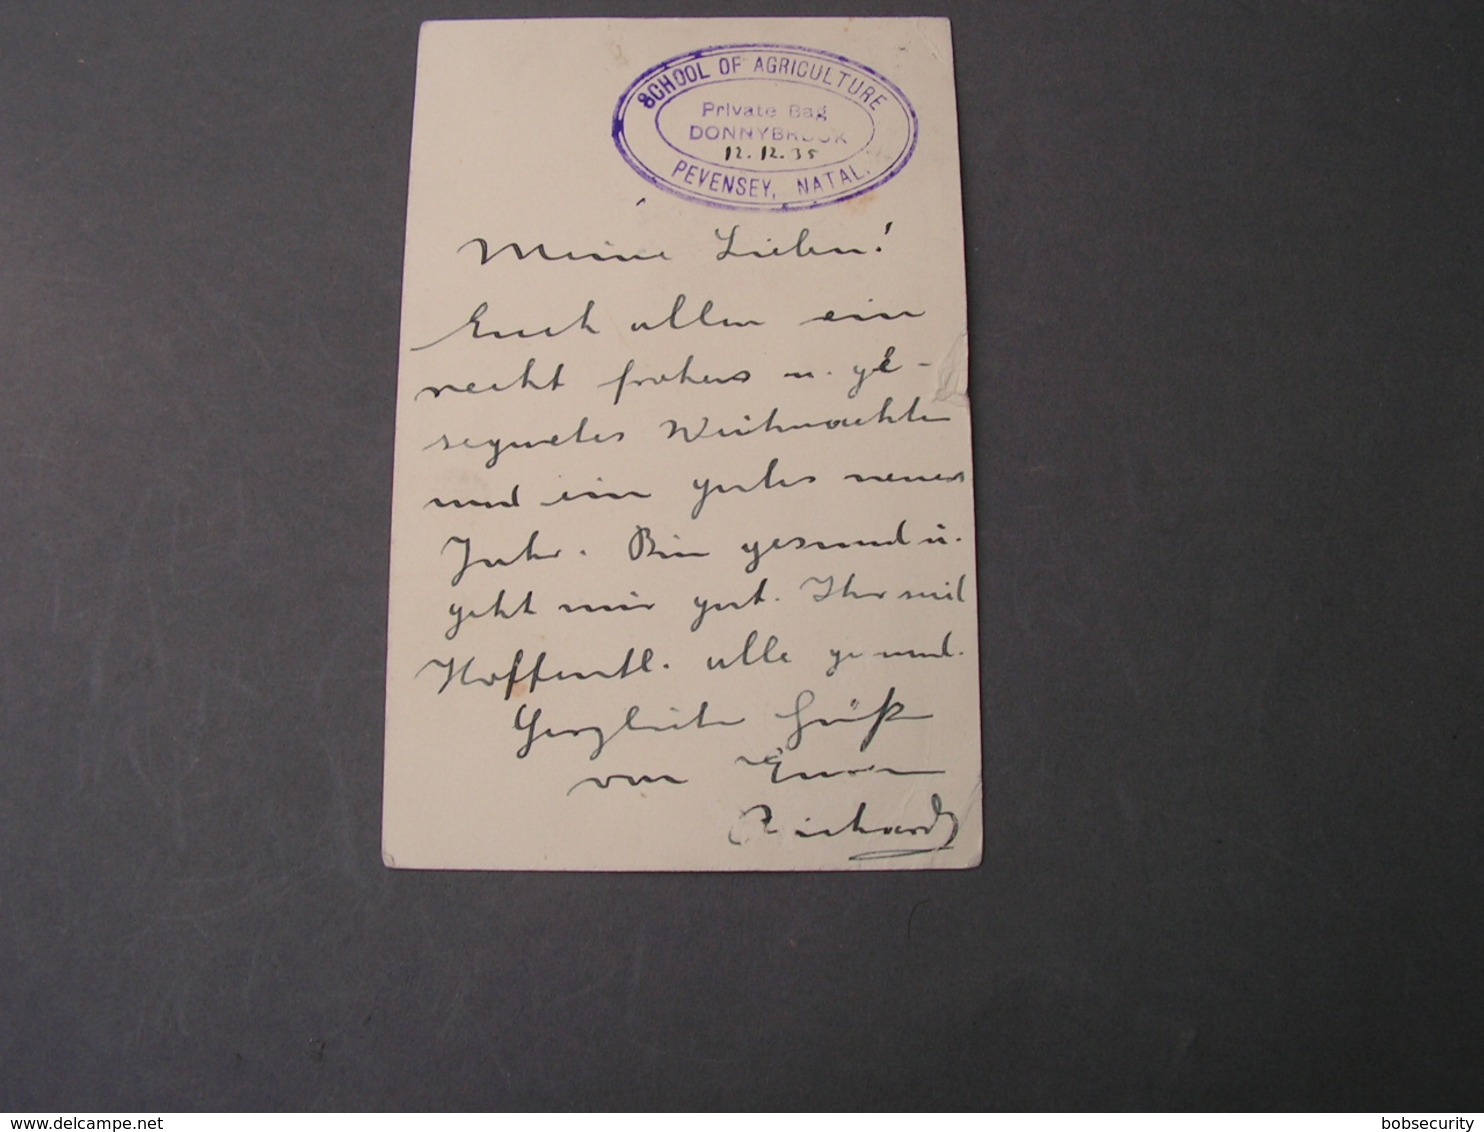 SCHOOL OF AGRICULTURE
Private Bag
DONNYBROOK
12.12.35
PEVENSEY, NATAL.
Meine Lieben!
Euch allen ein
recht frohes u. ge-
segnetes Weihnachten
und ein gutes neues
Jahr. Bin gesund u.
geht mir gut. Ihr seid
Hoffentl. alle gesund.
Herzliche Grüße
von Eurem
Richard
bobsecurity